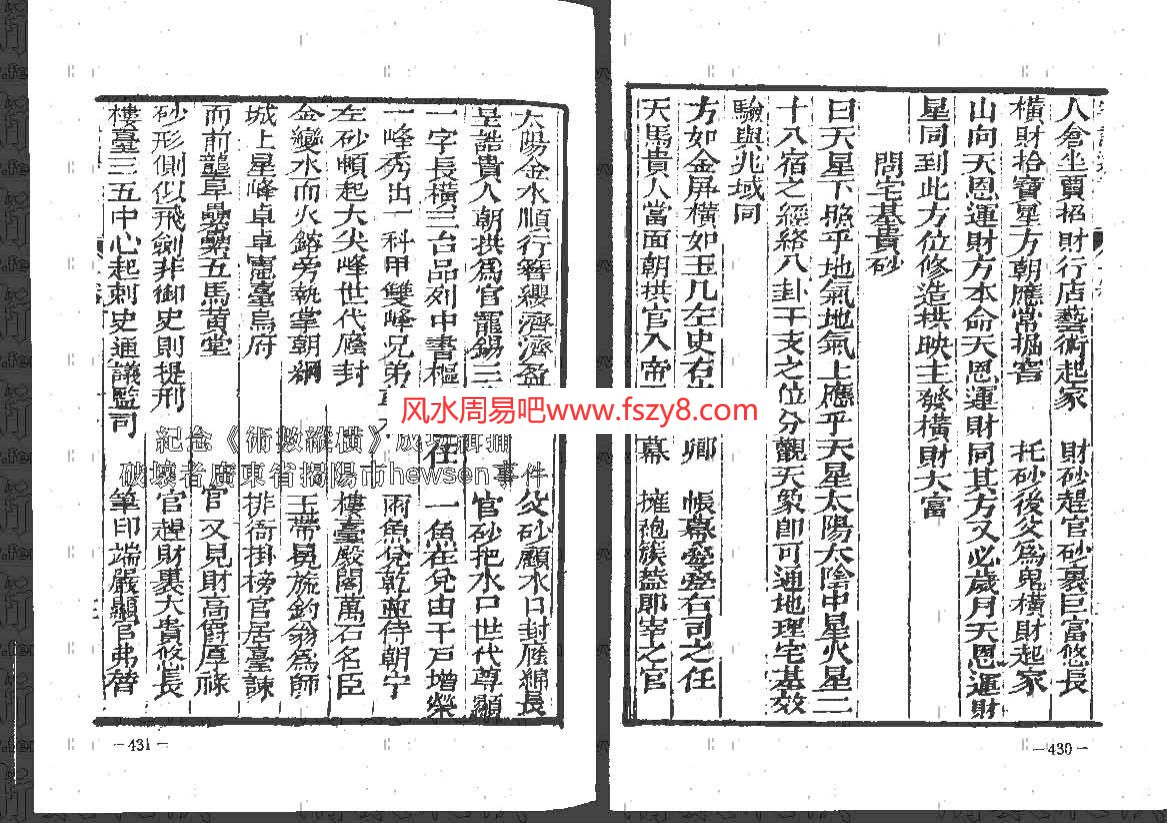 人倉坐賈招財行店藝術起家　財砂趕官砂裏巨富悠長
橫財拾寶星方朝應常掘窖　托砂後父為鬼橫財起家
山向天恩運財方本命天恩運財同其方又必歲月天恩運財
星同到此方位修造拱映主發橫財大富
問宅基貴砂
曰天星下照乎地氣地氣上應乎天星太陽太陰中星火星二
十八宿之經絡八卦干支之位分觀天象即可通地理宅基效
驗與兆域同
方如金屏橫如玉几左史右　卿　帳幕臺臺右司之任
天馬貴人當面朝拱官入帝　幕　擁袍旌蓋節宰之官
-430-
太陽金水順行簪纓濟濟盈　父砂顧水口封廕綿長
星誥貴人朝拱為官寵錫三　官砂把水口世代尊顯
一字長橫三台品列中書樞　在　一魚在兌由千戶增榮
一峰秀出一科甲雙峰兄弟　兩魚兌乾並侍朝宁
左砂頓起大尖峰世代廕封　樓臺殿閣萬石名臣
金變水而火鎔旁執掌朝綱　玉帶冕旒釣翁為師
城上星峰卓卓憲臺烏府　排衙掛榜官居臺諫
而前壟阜纍纍五馬黃堂　官又見財高爵厚祿
砂形側似飛劍非御史則提刑　官趕財裏大貴悠長
樓臺三五中心起刺史通議監司　筆印端嚴顯官弗替
-431-
风水周易吧www.fszy8.com
紀念《術數縱橫》
破壞者廣東省揭陽市hewsen事件